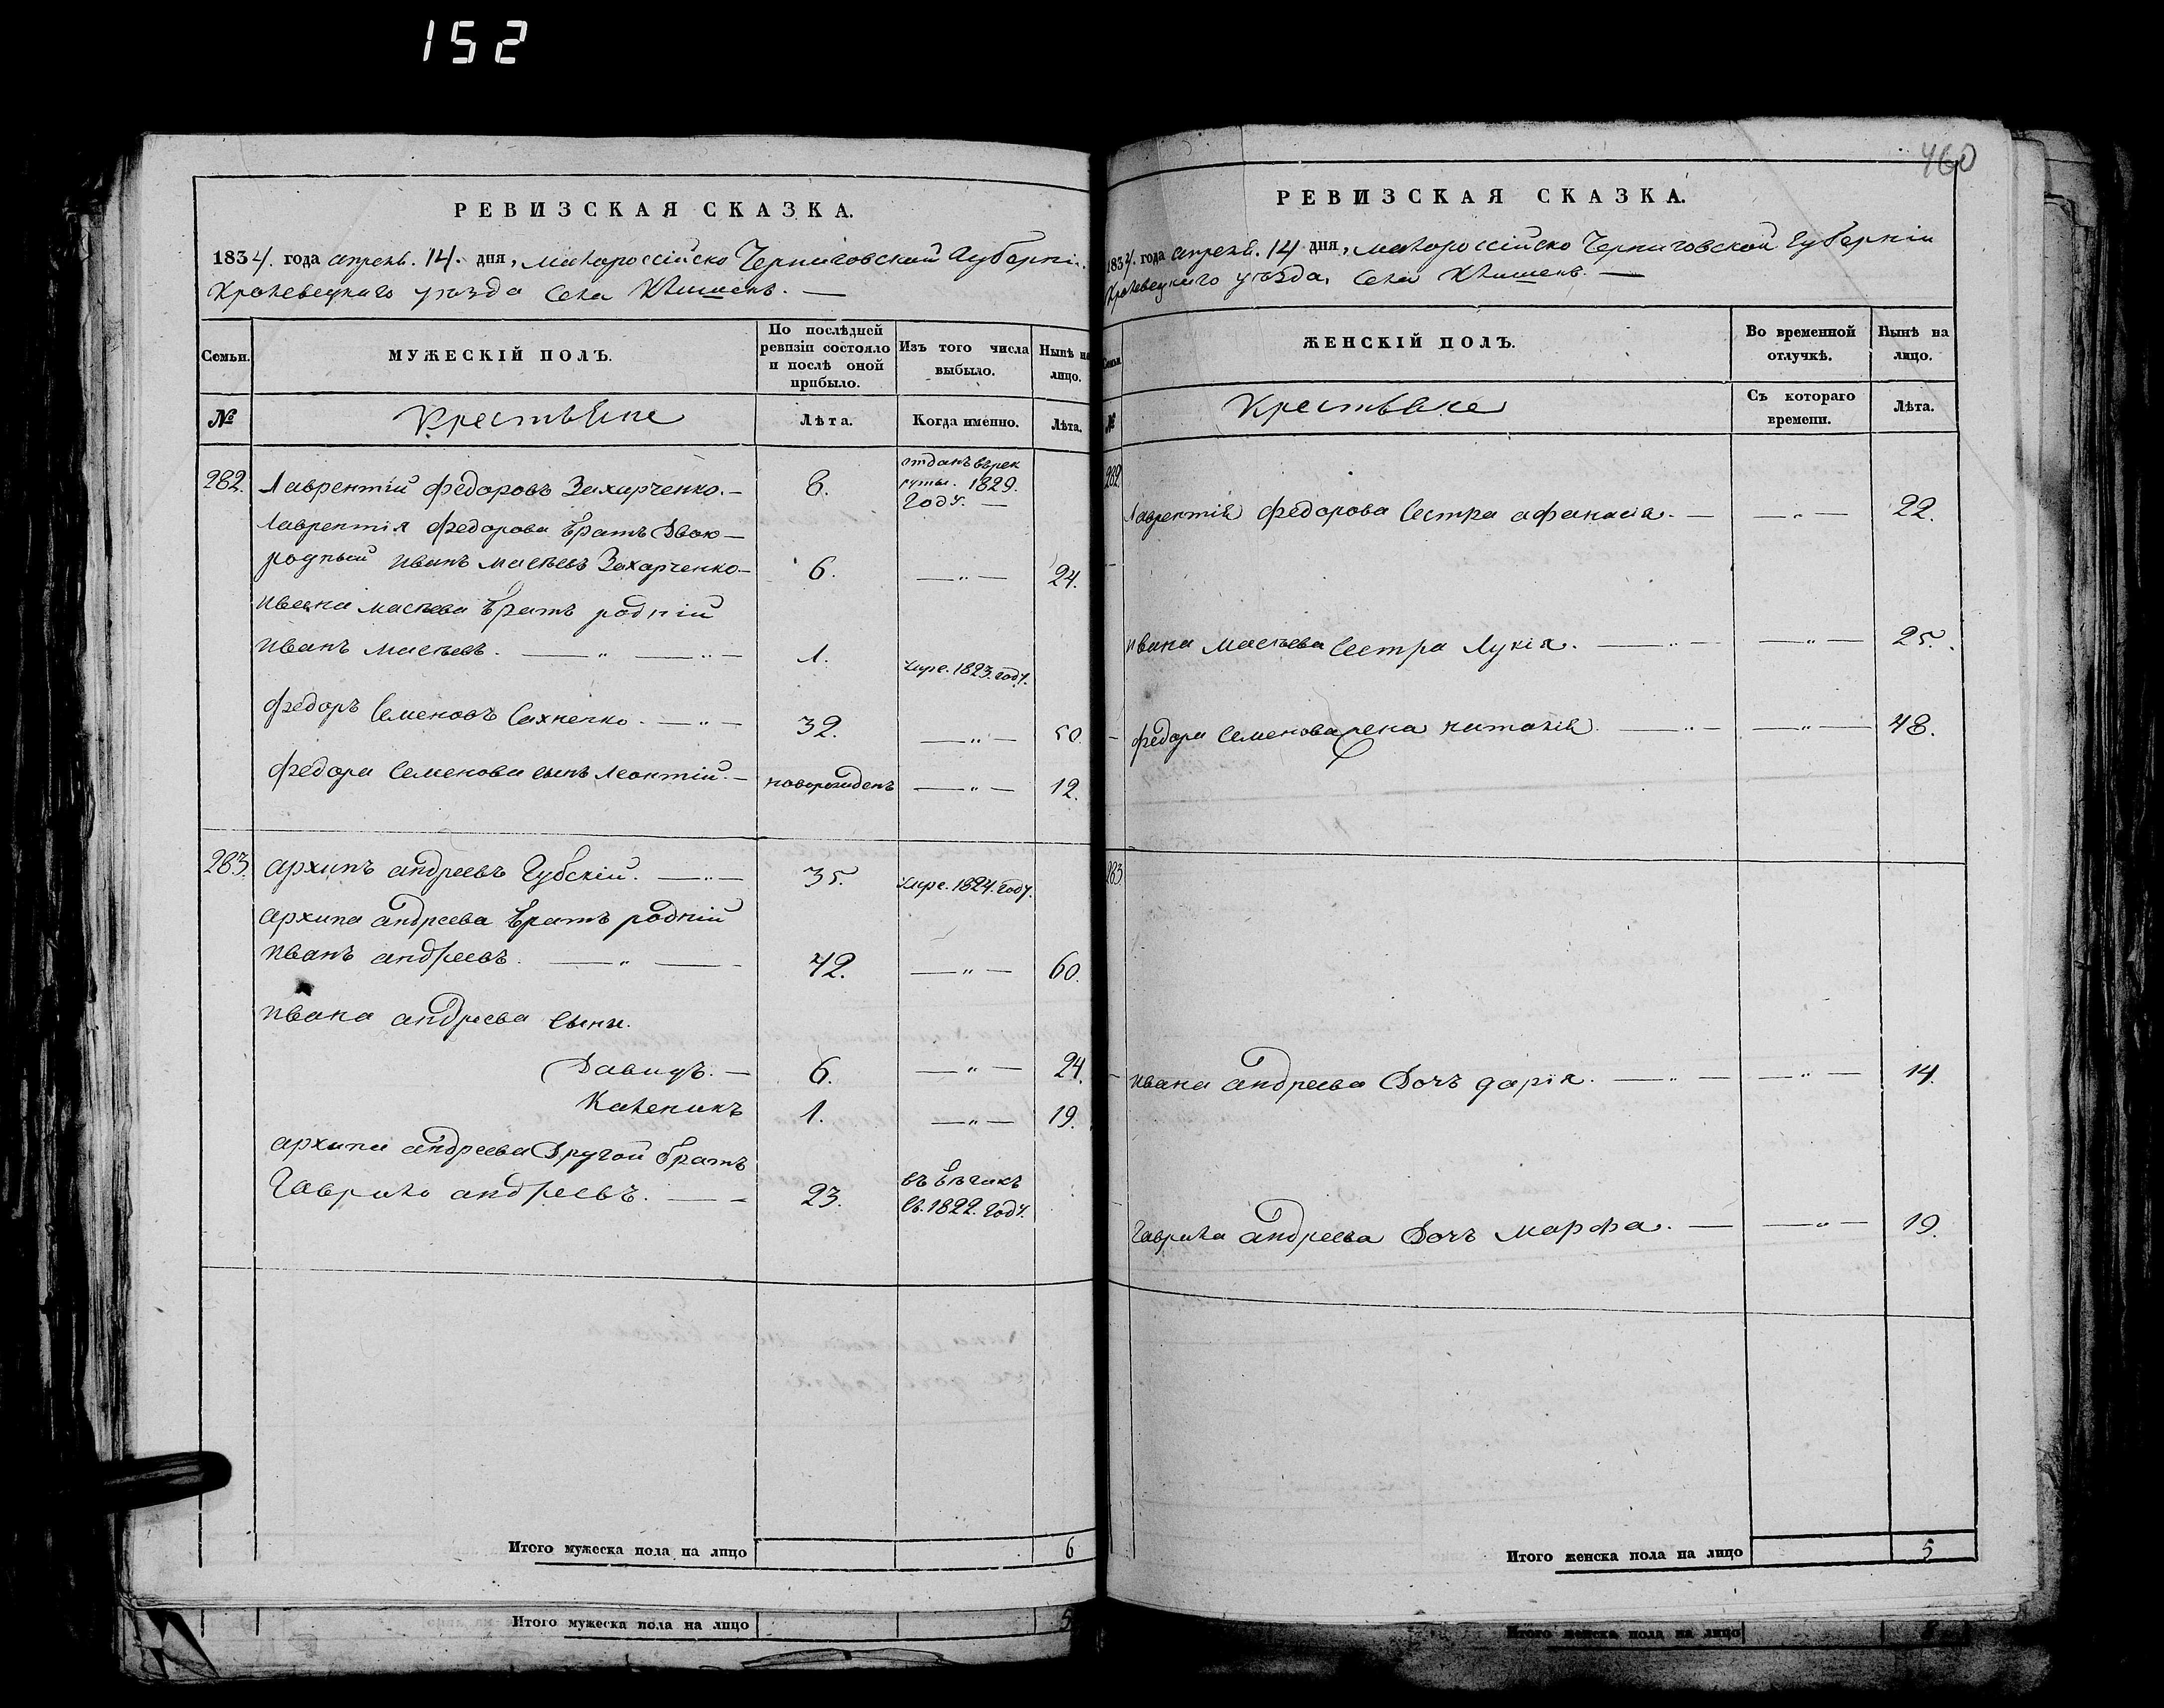 152
РЕВИЗСКАЯ СКАЗКА.
1834. года апреля. 14. дня, Малороссійско Черниговской Губерніи.
Кролевецкаго уезда села Клишекъ. —
Семьи.
МУЖЕСКІЙ ПОЛЪ.
По послѣдней ревизіи состояло и послѣ оной прибыло.
Изъ того числа выбыло.
Нынѣ на лицо.
№
Крестьяне
Лѣта.
Когда именно.
Лѣта.
282. Лаврентій федоровъ Захарченко. — 8. отданъ въ рек
руты. 1829.
Году. —
Лаврентія федорова братъ Двою—
родный иванъ Мавѣевъ Захарченко — 6. —〃— 24.
ивана Мавѣева братъ родній
иванъ Мавѣевъ. —〃—〃— 1. Умре. 1823. году.
федоръ Семеновъ Сахненко. —〃— 32. —〃— 50.
федора Семенова сынъ Леонтій. — новорожденъ —〃— 12.
283. архипъ андреевъ Губскій. —〃— 35. Умре. 1824. году.
архипа андреева братъ родній
иванъ андреевъ. —〃— 42. —〃— 60.
ивана андреева сыны.
Давидъ. — 6. —〃— 24.
Каленикъ 1. —〃— 19.
архипа андреева Другой братъ
Гаврило андреевъ. — 23.
1822. году.
Итого мужеска пола на лицо 6
Итого мужеска пола на лицо 5
460
РЕВИЗСКАЯ СКАЗКА.
1834. года апреля. 14 дня, Малороссійско Черниговской Губерніи
Кролевецкаго уезда, села Клишекъ. —
Семьи
ЖЕНСКІЙ ПОЛЪ.
Во временной отлучкѣ.
Нынѣ на лицо.
№
Крестьяне
Съ котораго времени.
Лѣта.
282
Лаврентія федорова Сестра афанасія. — —〃— 22.
ивана Мавѣева Сестра Лукія. —〃— —〃— 25.
федора Семенова жена наталія. —〃— —〃— 48.
283
ивана андреева Дочъ дарія. —〃— —〃— 14.
гаврила андреева Дочъ марфа. — —〃— 19.
Итого женска пола на лицо 5
Итого женска пола на лицо